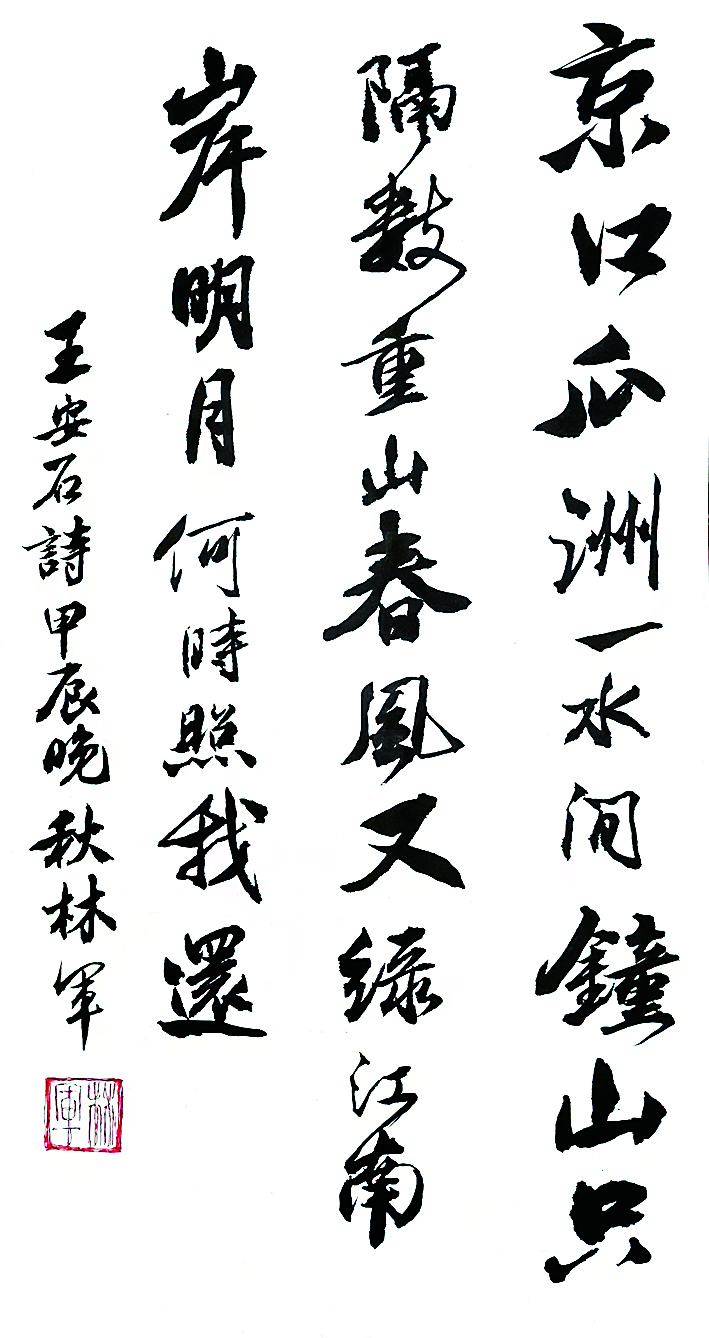 京口瓜洲一水间鐘山只
隔數重山春風又綠江南
岸明月何時照我還
王安石詩甲辰晚秋林軍
林軍